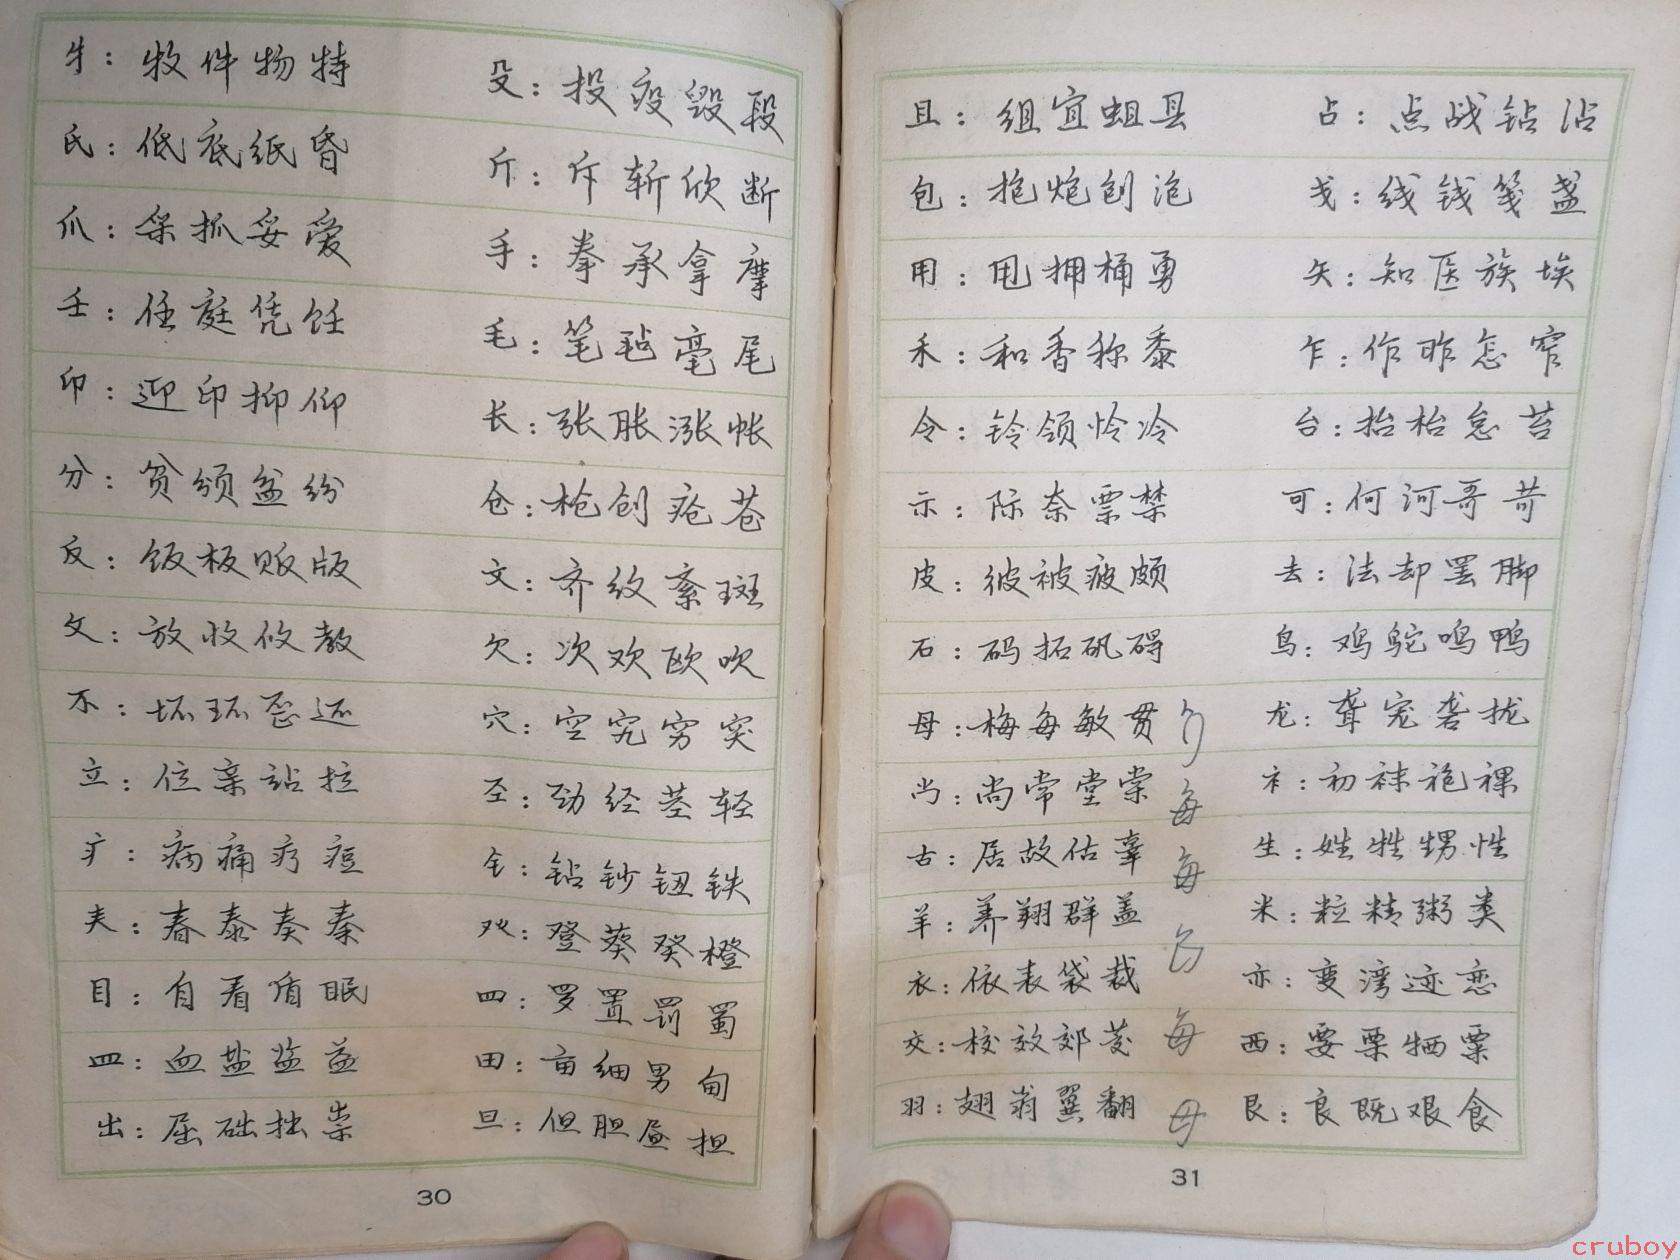 牜：牧件物特
殳：投疫毁段
氏：低底纸昏
斤：斥斩欣断
爪：采抓妥爱
手：拳承拿摩
壬：任庭凭饪
毛：笔毡毫尾
卬：迎印抑仰
长：张胀涨帐
分：贫颁盆纷
仓：枪创疮苍
反：饭板贩版
文：齐纹紊斑
攵：放收攸教
欠：次欢欧吹
不：坯环歪还
穴：空究穷突
立：位亲站拉
圣：劲经茎轻
疒：病痛疗痘
钅：钻钞钮铁
春泰奏秦
癶：登葵癸橙
目：自看盾眠
四：罗置罚蜀
皿：血盐监益
田：亩细男甸
出：屈础拙祟
旦：但胆昼担
30
且：组宜蛆县
占：点战钻沾
包：抱炮刨泡
戋：线钱笺盏
用：甩拥桶勇
矢：知医族埃
禾：和香称黍
乍：作昨怎窄
令：铃领怜冷
台：抬枱怠苔
示：际奈票禁
可：何河哥苛
皮：彼被疲颇
去：法却罢脚
石：码拓矾碍
鸟：鸡鸵鸣鸭
母：梅每敏贯
龙：聋宠砻拢
尚：尚常堂棠
衤：初袜袍裸
每
古：居故估辜
生：姓牲甥性
每
羊：养翔群盖
米：粒精粥类
衣：依表袋裁
亦：变湾迹恋
交：校效郊茭
每
西：要栗牺粟
羽：翅翁翼翻
母
艮：良既艰食
31
cruboy